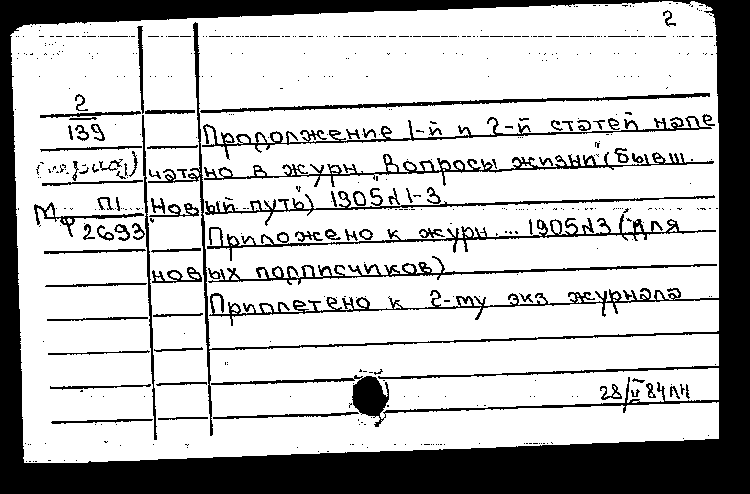 2
2
139
Продолжение 1-й и 2-й статей напе
(период) чатано в журн. "Вопросы жизни" (бывш.
Мф П1 "Новый путь") 1905 №1-3.
2693 Приложено к журн. ... 1905 №3 (для
новых подписчиков)
Приплетено к 2-му экз журнала
28/II 84 ЛН